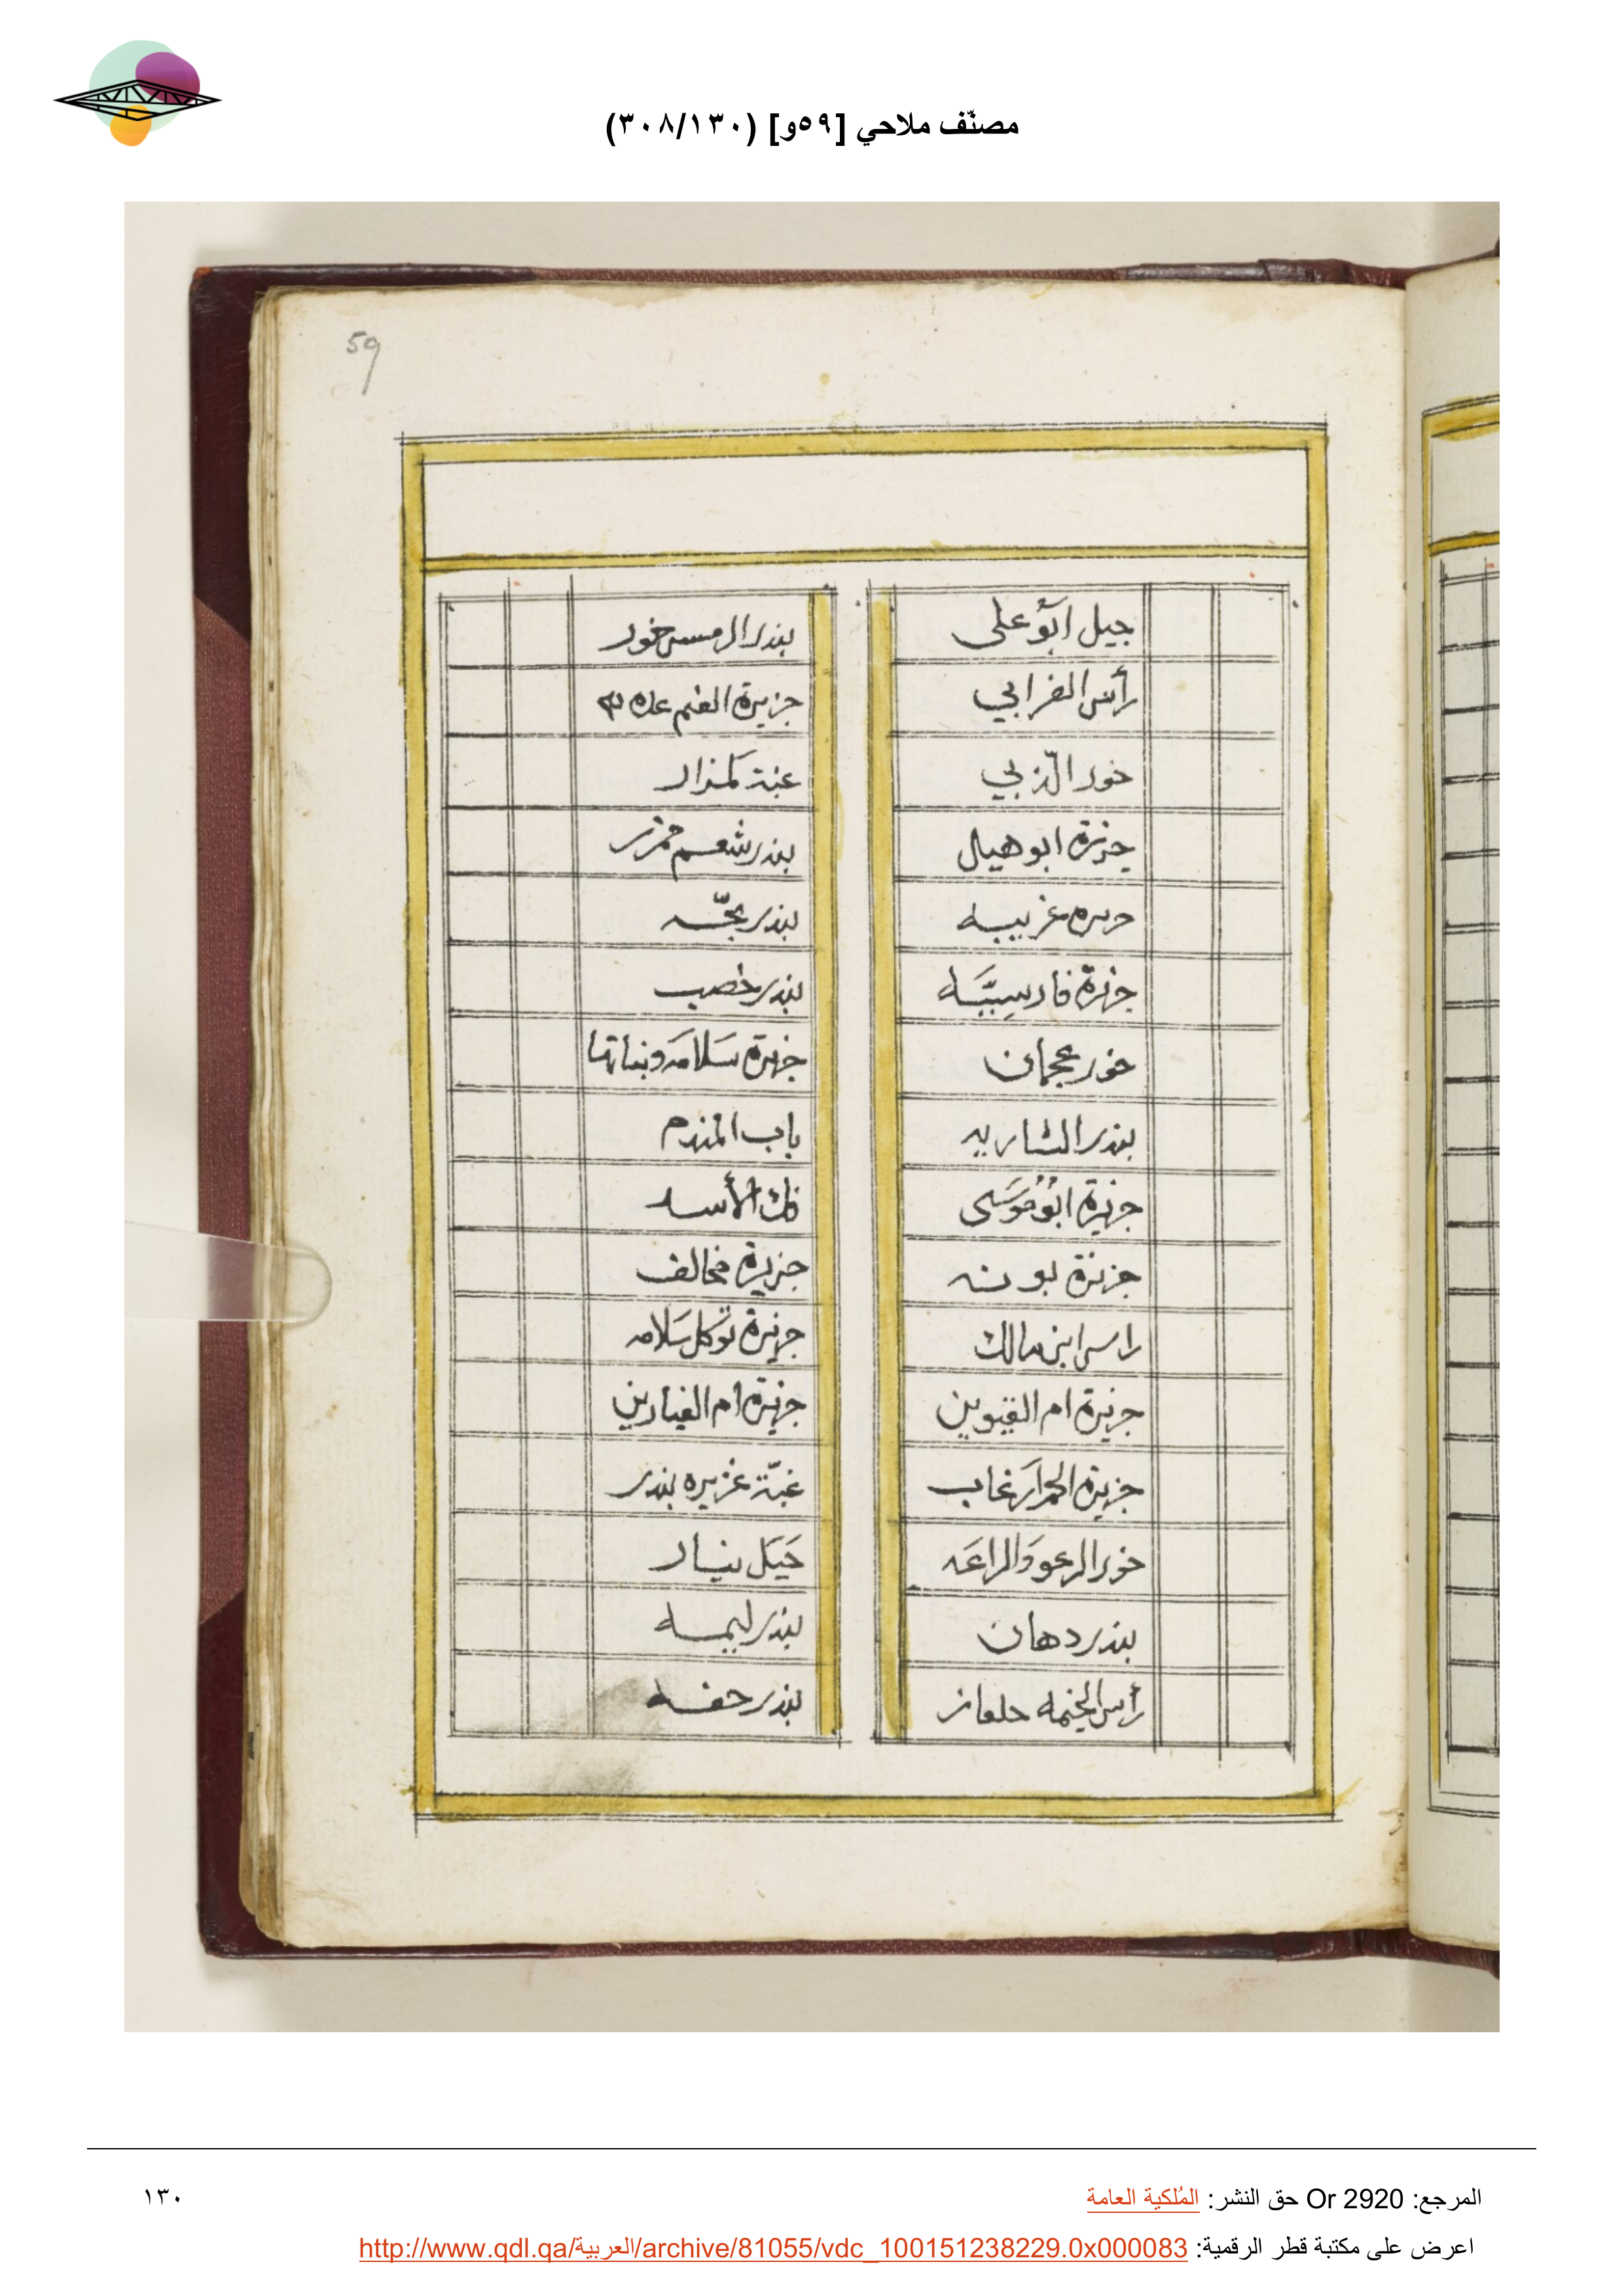 مصنّف ملاحي [٥٩و] (٣٠٨/١٣٠)
59
جبل ابو علي
رأس الغرابي
خور الزبي
جزيرة ابو هيل
غريبيه
جزيرة فارسيَّه
خور عجمان
بندر الشاربه
جزيرة ابو موسى
جزيرة بو
راس ابن مالك
جزيرة ام القيوين
جزيرة الحمرا زغاب
خور الرعو والراعَه
بندر دهان
رأس الخيمه جلفار
بندر الرمس خور
جزيرة الغنم
غبة كمزار
بندر شعم
بندر بخّه
بندر خصب
جزيرة سَلامَه وبناتها
باب المندم
فك الأسد
جزيرة مخالف
جزيرة توكل سَلامه
جزيرة ام الفيارين
غبّة غزيره بندر
جبَل
بندر ليمه
بندر حفه
المرجع: Or 2920 حق النشر: المُلكية العامة
١٣٠
اعرض على مكتبة قطر الرقمية: http://www.qdl.qa/العربية/archive/81055/vdc_100151238229.0x000083